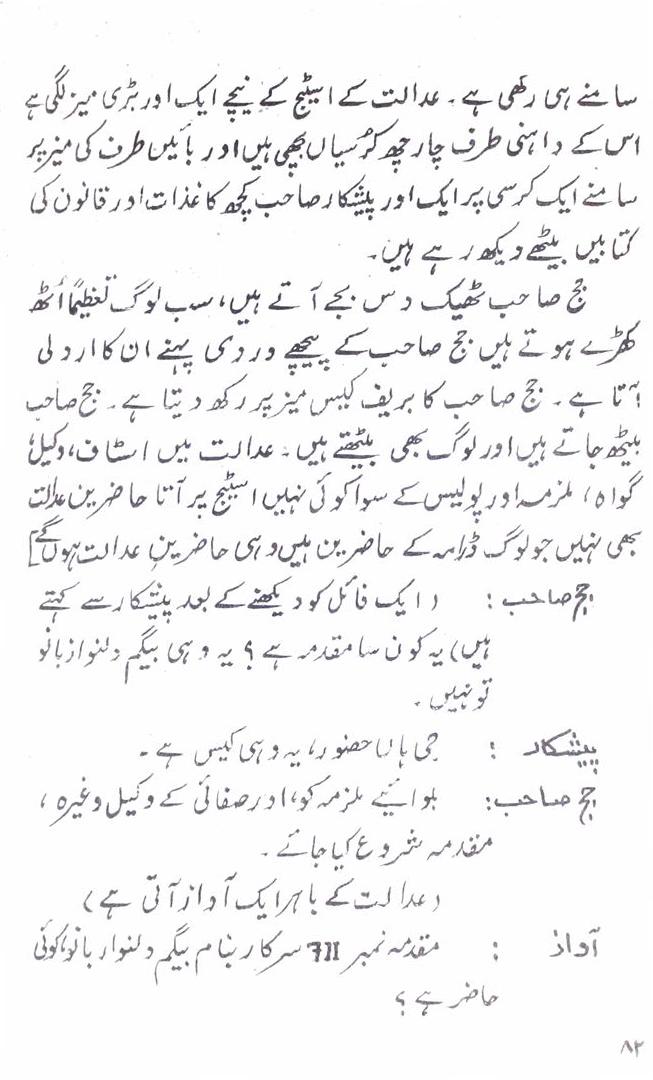 سامنے ہی رکھی ہے۔ عدالت کے اسٹیج کے نیچے ایک اور بڑی میز لگی ہے
اس کے داہنی طرف چار چھ کرُسیاں بچھی ہیں اور بائیں طرف کی میز پر
سامنے ایک کرسی پر ایک اور پیشکار صاحب کچھ کاغذات اور قانون کی
کتابیں بیٹھے دیکھ رہے ہیں۔
جج صاحب ٹھیک دس بجے آتے ہیں، سب لوگ تعظیماً اُٹھ
کھڑے ہوتے ہیں جج صاحب کے پیچھے وردی پہنے ان کا اردلی
آتا ہے۔ جج صاحب کا بریف کیس میز پر رکھ دیتا ہے۔ جج صاحب
بیٹھ جاتے ہیں اور لوگ بھی بیٹھتے ہیں۔ عدالت میں اسٹاف، وکیل،
گواہ، ملزمہ اور پولیس کے سوا کوئی نہیں اسٹیج پر آتا حاضرین عدالت
بھی نہیں جو لوگ ڈرامہ کے حاضرین ہیں وہی حاضرینِ عدالت ہوں گے]
جج صاحب : (ایک فائل کو دیکھنے کے بعد پیشکار سے کہتے
ہیں) یہ کون سا مقدمہ ہے؟ یہ وہی بیگم دلنواز بانو
تو نہیں۔
پیشکار : جی ہاں حضور، یہ وہی کیس ہے۔
جج صاحب: بلوائیے ملزمہ کو، اور صفائی کے وکیل وغیرہ،
مقدمہ شروع کیا جائے۔
(عدالت کے باہر ایک آواز آتی ہے)
آواز : مقدمہ نمبر 711 سرکار بنام بیگم دلنواز بانو، کوئی
حاضر ہے؟
۸۲